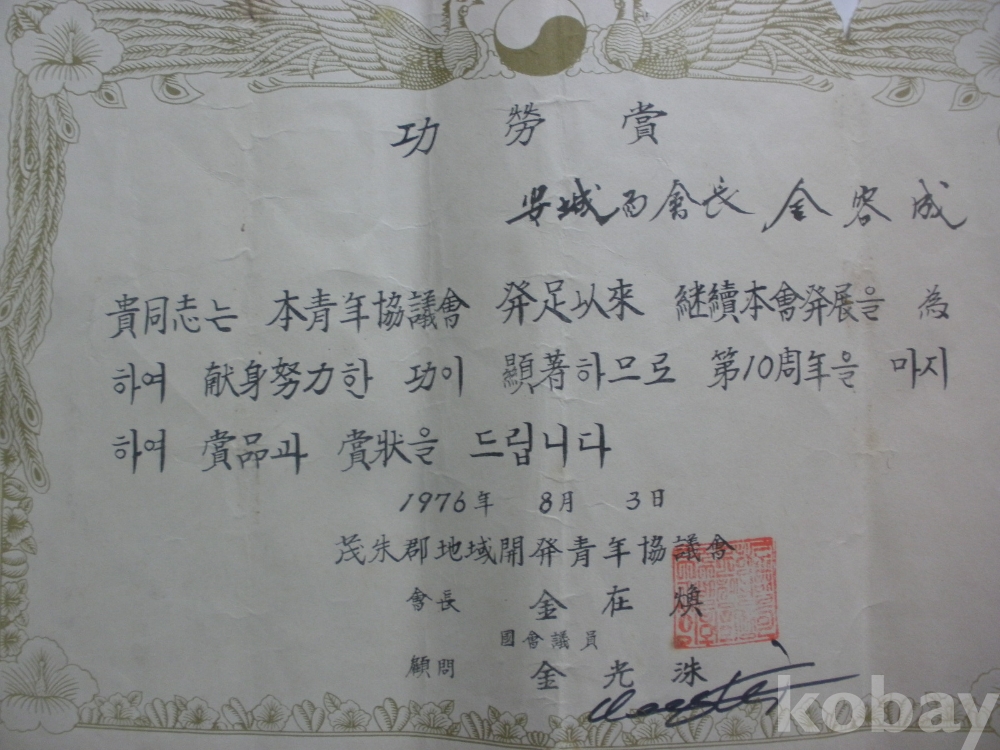 功勞賞
安城面會長 金容成
貴同志는 本青年協議會 発足以來 継續本會発展을 為
하여 献身努力한 功이 顯著하므로 第10周年을 마지
하여 賞品과 賞狀을 드립니다
1976年 8月 3日
茂朱郡地域開発青年協議會
會長 金在煥
國會議員
顧問 金光洙
kobay